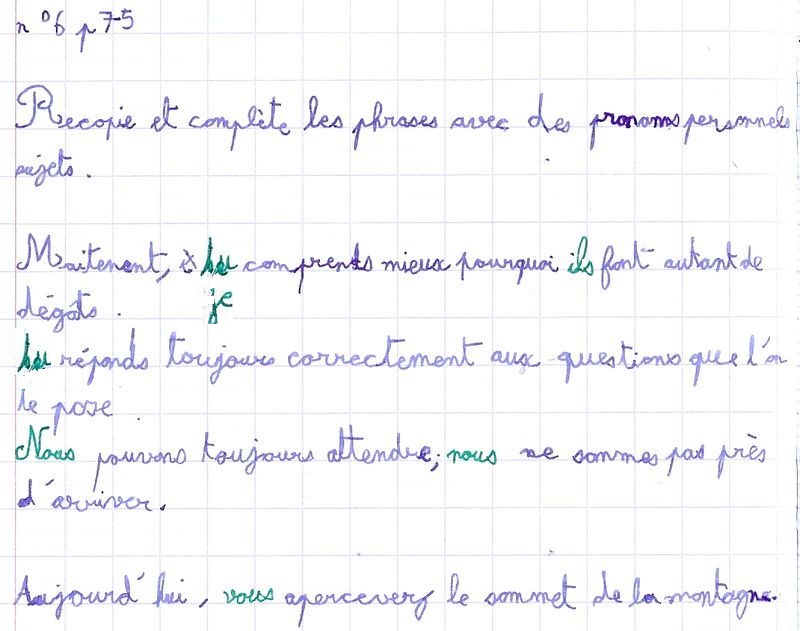 n°6 p 75
Recopie et complète les phrases avec des pronoms personnels
sujets.
Maitenant, tu comprends mieux pourquoi ils font autant de
dégâts. je
tu réponds toujours correctement aux questions que l'on
te pose.
Nous pouvons toujours attendre, nous ne sommes pas près
d'arriver.
Aujourd'hui, vous apercevez le sommet de la montagne.